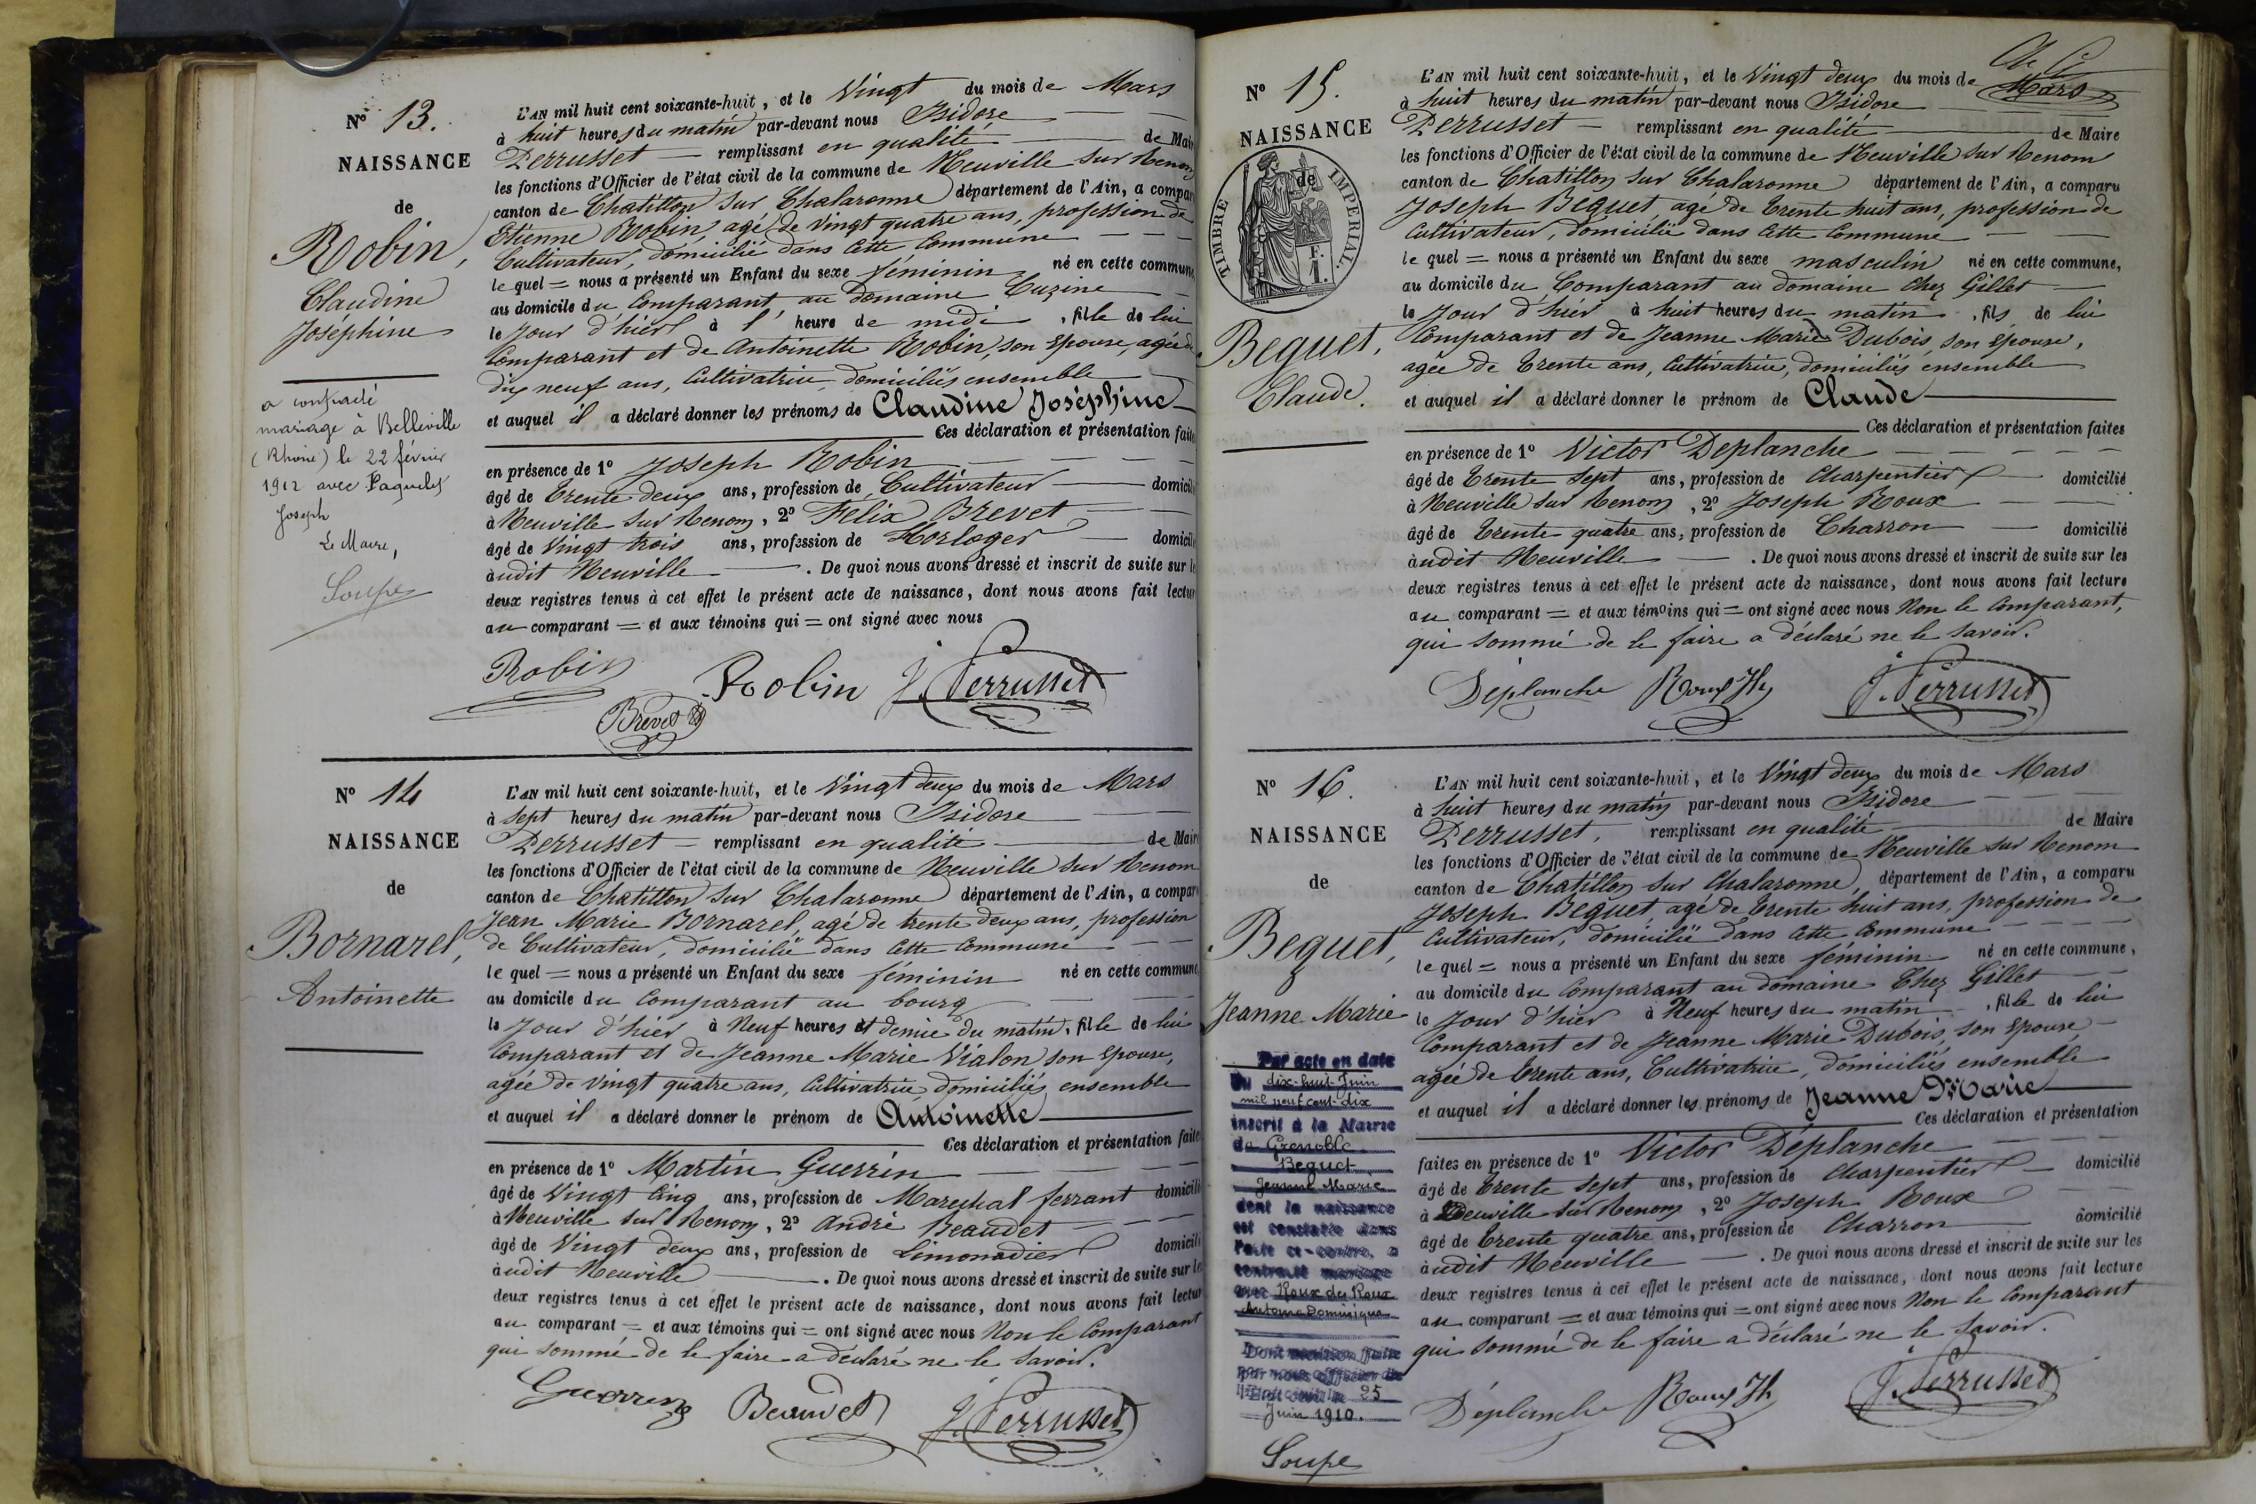 N° 13.
NAISSANCE
de
Robin,
Claudine
Joséphine
a contracté
mariage à Belleville
(Rhône) le 22 février
1912 avec Paquelet
Joseph
Le Maire,
Soupe
L'AN mil huit cent soixante-huit, et le Vingt du mois de Mars
à huit heures du matin par-devant nous Isidore
Perrusset — remplissant en qualité — de Mair
les fonctions d'Officier de l'état civil de la commune de Neuville sur Renom
canton de Chatillon sur Chalaronne département de l'Ain, a compar
Etienne Robin, agé de vingt quatre ans, profession de
Cultivateur, domicilié dans cette Commune
le quel = nous a présenté un Enfant du sexe féminin né en cette commune,
au domicile du Comparant au domaine Cuzine
le Jour d'hier à l' heure de midi , fille de lui
Comparant et de Antoinette Robin, son Epouse, agée de
dix neuf ans, Cultivatrice, domiciliés ensemble
et auquel il a déclaré donner les prénoms de Claudine Joséphine
Ces déclaration et présentation faites
en présence de 1° Joseph Robin
âgé de Trente deux ans, profession de Cultivateur — domicili
à Neuville sur Renom, 2° Felix Brevet
âgé de Vingt trois ans, profession de Horloger — domicili
àudit Neuville — . De quoi nous avons dressé et inscrit de suite sur le
deux registres tenus à cet effet le présent acte de naissance, dont nous avons fait lectur
au comparant = et aux témoins qui = ont signé avec nous
Robin Robin J. Perrusset
Brevet
N° 14
NAISSANCE
de
Bornarel,
Antoinette
L'AN mil huit cent soixante-huit, et le Vingt deux du mois de Mars
à sept heures du matin par-devant nous Isidore
Perrusset — remplissant en qualité — de Maire
les fonctions d'Officier de l'état civil de la commune de Neuville sur Renom
canton de Chatillon sur Chalaronne département de l'Ain, a comparu
Jean Marie Bornarel, agé de trente deux ans, profession
de Cultivateur, domicilié dans cette Commune
le quel = nous a présenté un Enfant du sexe féminin né en cette commune,
au domicile du Comparant au bourg
le Jour d'hier à Neuf heures et demie du matin, fille de lui
Comparant et de Jeanne Marie Vialon son Epouse,
agée de vingt quatre ans, Cultivatrice domiciliés ensemble
et auquel il a déclaré donner le prénom de Antoinette
Ces déclaration et présentation faites
en présence de 1° Martin Guerrin
âgé de Vingt Cinq ans, profession de Marechal ferrant domicili
à Neuville sur Renom, 2° André Beaudet
âgé de Vingt deux ans, profession de Limonadier domicili
àudit Neuville — . De quoi nous avons dressé et inscrit de suite sur le
deux registres tenus à cet effet le présent acte de naissance, dont nous avons fait lectur
au comparant = et aux témoins qui = ont signé avec nous Non le Comparant
qui sommé de le faire a déclaré ne le savoir.
Guerrin Beaudet J. Perrusset
N° 15.
NAISSANCE
de
TIMBRE IMPERIAL
1 F.
Bequet,
Claude.
L'AN mil huit cent soixante-huit, et le Vingt deux du mois de Mars
à huit heures du matin par-devant nous Isidore
Perrusset — remplissant en qualité — de Maire
les fonctions d'Officier de l'état civil de la commune de Neuville sur Renom
canton de Chatillon sur Chalaronne département de l'Ain, a comparu
Joseph Bequet agé de Trente huit ans, profession de
Cultivateur, domicilié dans cette Commune
le quel = nous a présenté un Enfant du sexe masculin né en cette commune,
au domicile du Comparant au domaine Chez Gillet
le Jour d'hier à huit heures du matin , fils de lui
Comparant et de Jeanne Marie Dubois son Epouse,
agée de Trente ans, Cultivatrice, domiciliés ensemble
et auquel il a déclaré donner le prénom de Claude
Ces déclaration et présentation faites
en présence de 1° Victor Deplanche
âgé de Trente sept ans, profession de Charpentier domicilié
à Neuville sur Renom, 2° Joseph Roux
âgé de Trente quatre ans, profession de Charron — domicilié
àudit Neuville — . De quoi nous avons dressé et inscrit de suite sur les
deux registres tenus à cet effet le présent acte de naissance, dont nous avons fait lecture
au comparant = et aux témoins qui = ont signé avec nous Non le Comparant,
qui sommé de le faire a déclaré ne le savoir.
Déplanche Roux Jh J. Perrusset
N° 16.
NAISSANCE
de
Bequet,
Jeanne Marie
Par acte en date
du dix-huit Juin
mil neuf cent dix
inscrit à la Mairie
de Grenoble
Bequet
Jeanne Marie
dont la naissance
est constatée dans
l'acte ci-contre, a
contracté mariage
avec Roux dit Roux
Antoine Dominique
Dont mention faite
par nous officier de
l'Etat civil le 25
Juin 1910.
Soupe
L'AN mil huit cent soixante-huit, et le Vingt deux du mois de Mars
à huit heures du matin par-devant nous Isidore
Perrusset, remplissant en qualité — de Maire
les fonctions d'Officier de l'état civil de la commune de Neuville sur Renom
canton de Chatillon sur Chalaronne, département de l'Ain, a comparu
Joseph Bequet, agé de Trente huit ans, profession de
Cultivateur, domicilié dans cette Commune
le quel = nous a présenté un Enfant du sexe féminin né en cette commune,
au domicile du Comparant au domaine Chez Gillet
le Jour d'hier à Neuf heures du matin , fille de lui
Comparant et de Jeanne Marie Dubois, son Epouse,
agée de Trente ans, Cultivatrice, domiciliés ensemble
et auquel il a déclaré donner les prénoms de Jeanne Marie
Ces déclaration et présentation
faites en présence de 1° Victor Déplanche
âgé de Trente sept ans, profession de Charpentier domicilié
à Neuville sur Renom, 2° Joseph Roux
âgé de Trente quatre ans, profession de Charron domicilié
àudit Neuville — . De quoi nous avons dressé et inscrit de suite sur les
deux registres tenus à cet effet le présent acte de naissance, dont nous avons fait lecture
au comparant = et aux témoins qui = ont signé avec nous Non le Comparant
qui sommé de le faire a déclaré ne le savoir.
Déplanche Roux Jh J. Perrusset